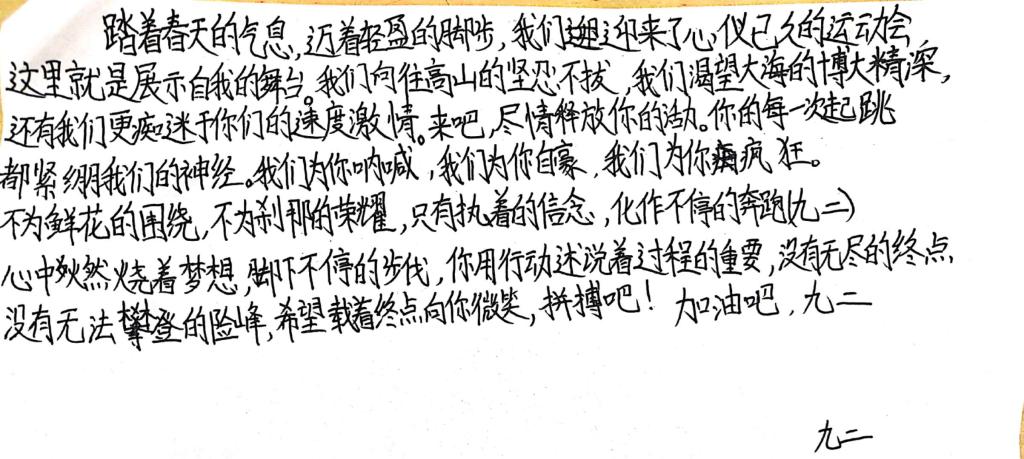 踏着春天的气息,迈着轻盈的脚步,我们迎来了心仪已久的运动会
这里就是展示自我的舞台。我们向往高山的坚忍不拔,我们渴望大海的博大精深,
还有我们更痴迷于你们的速度激情。来吧,尽情释放你的活力。你的每一次起跳
都紧绷我们的神经。我们为你呐喊,我们为你自豪,我们为你疯狂。
不为鲜花的围绕,不为刹那的荣耀,只有执着的信念,化作不停的奔跑(九二)
心中然烧着梦想,脚下不停的步伐,你用行动述说着过程的重要,没有无尽的终点
没有无法攀登的险峰,希望载着终点向你微笑,拼搏吧!加油吧,九二
九二